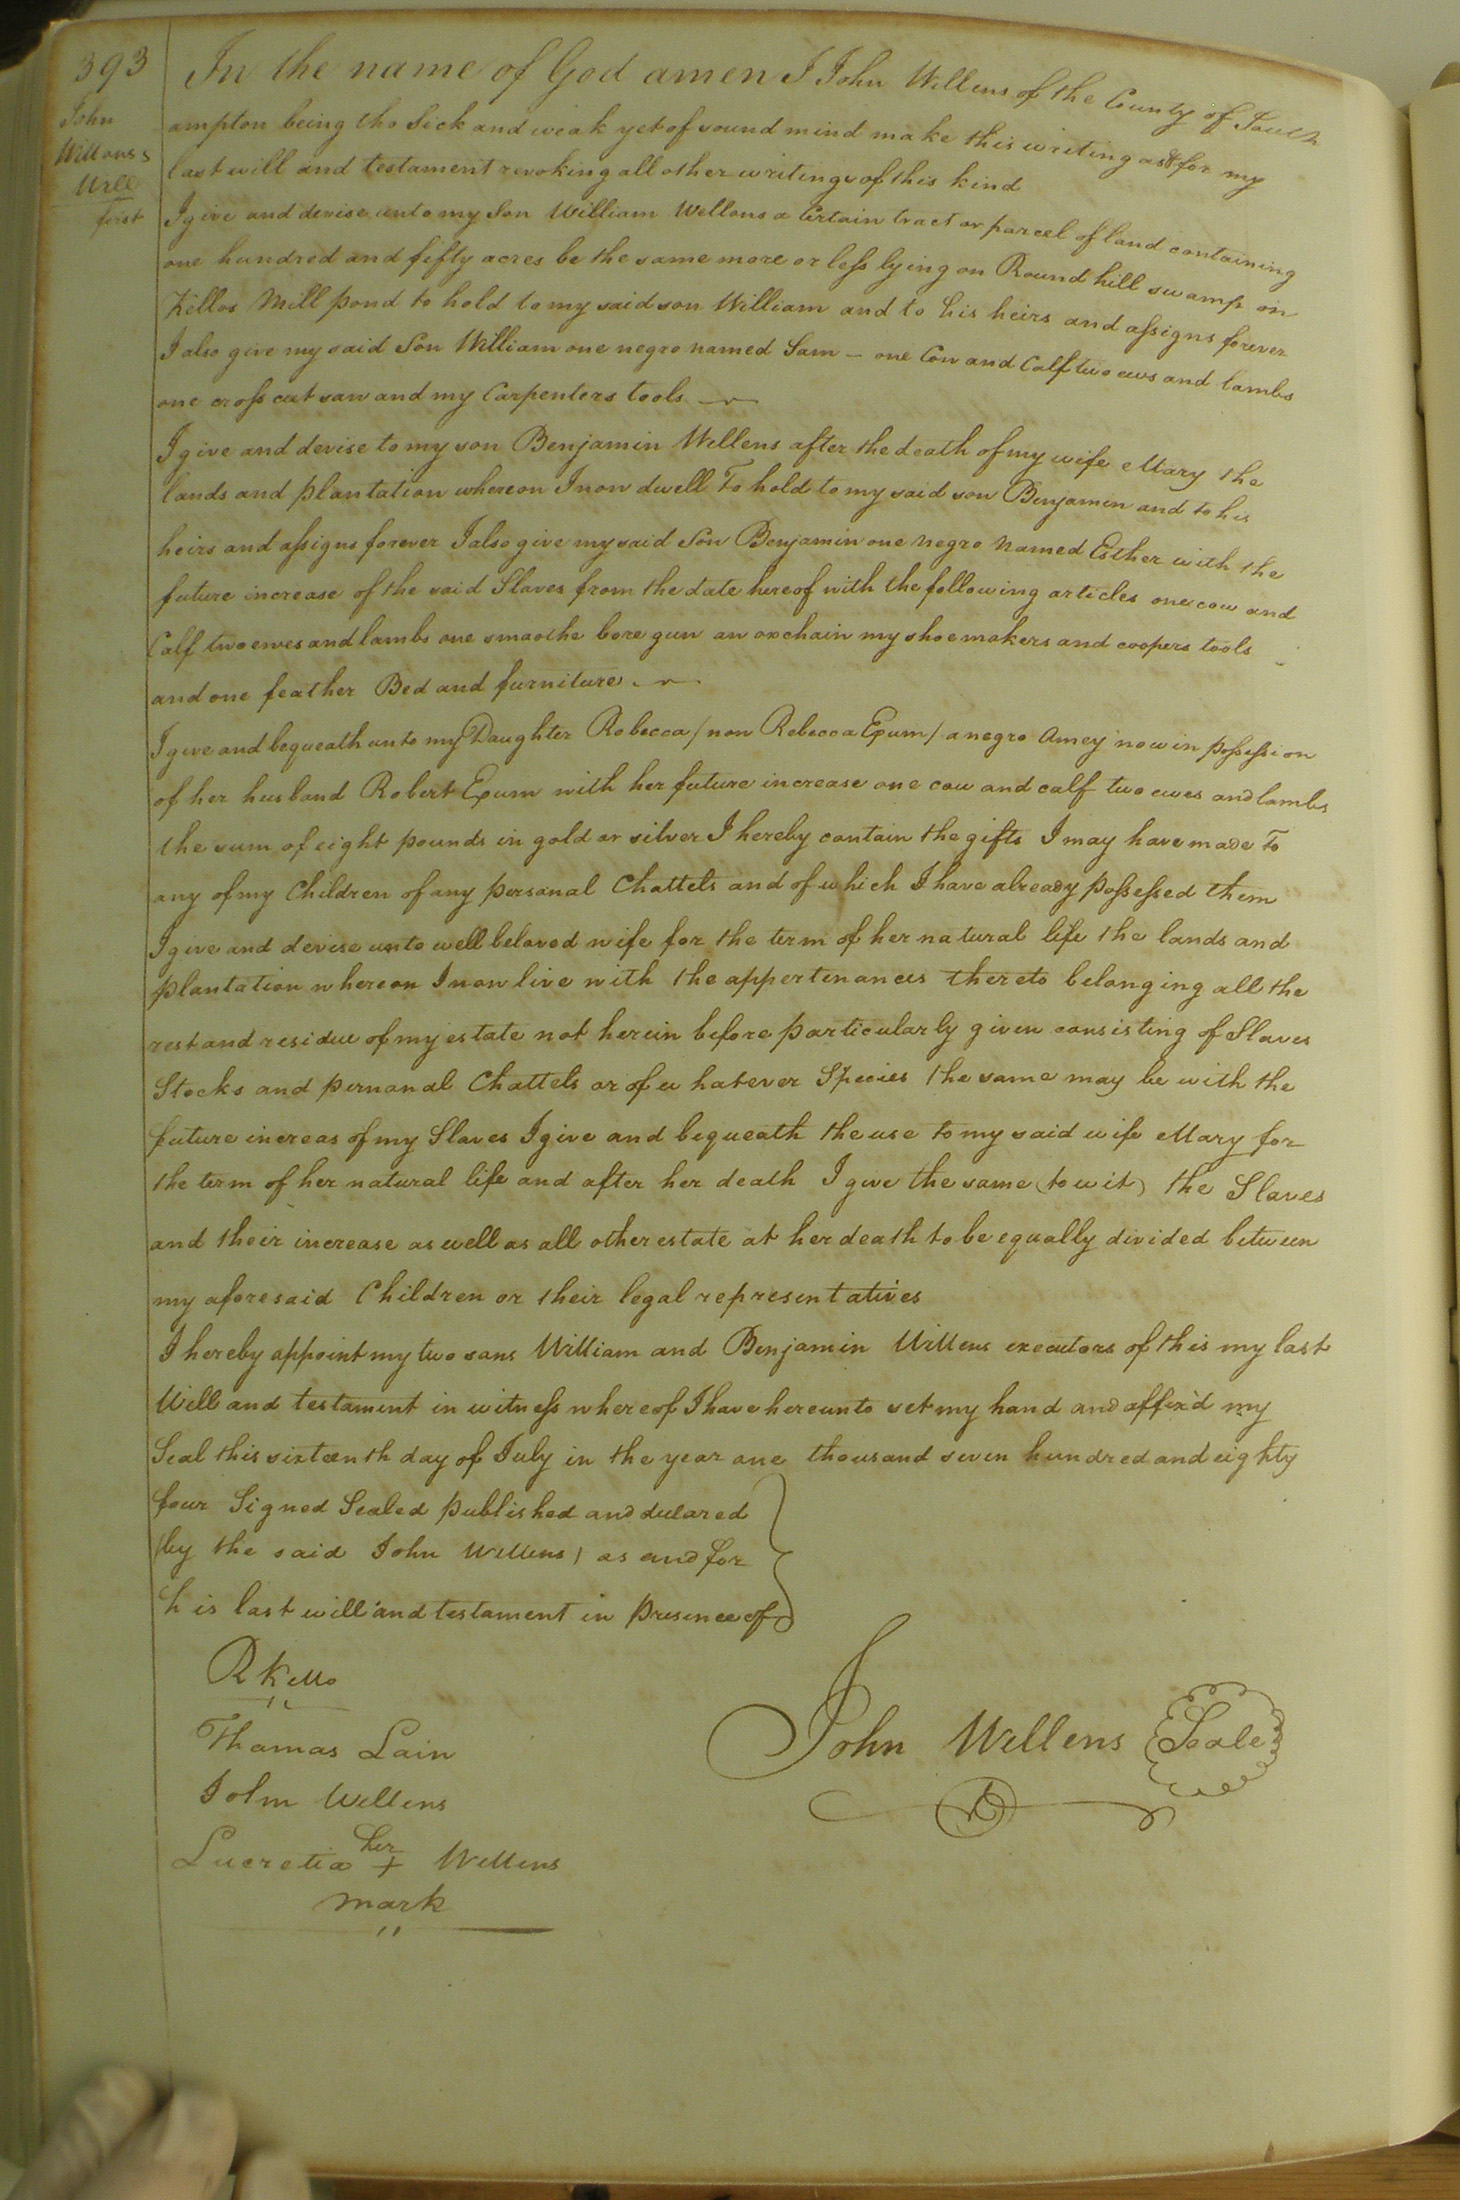 393
John
Wellons s
Will
first
In the name of God amen I John Wellens of the County of South
ampton being tho Sick and weak yet of sound mind make this writing as & for my
last will and testament revoking all other writings of this kind
I give and devise unto my Son William Wellons a Certain tract or parcel of land containing
one hundred and fifty acres be the same more or less lying on Round hill swamp on
Kellos Mill pond to hold to my said son William and to his heirs and assigns forever
I also give my said Son William one negro named Sam – one Cow and Calf two ews and lambs
one cross cut saw and my Carpenters tools
I give and devise to my son Benjamin Wellens after the death of my wife Mary the
lands and plantation whereon I now dwell To hold to my said son Benjamin and to his
heirs and assigns forever I also give my said Son Benjamin one negro Named Esther with the
future increase of the said Slaves from the date hereof with the following articles one cow and
Calf two ewes and lambs one smoothe bore gun an oxchain my shoemakers and coopers tools
and one feather Bed and furniture
I give and bequeath unto my Daughter Rebecca / now Rebecca Exum / a negro Amey now in possession
of her husband Robert Exum with her future increase one cow and calf two ewes and lambs
the sum of eight pounds in gold or silver I hereby contain the gifts I may have made To
any of my Children of any personal Chattels and of which I have already possessed them
I give and devise unto well beloved wife for the term of her natural life the lands and
plantation whereon I now live with the appertenances thereto belonging all the
rest and residue of my estate not herein before particularly given consisting of Slaves
Stocks and pernonal Chattels or of whatever Species the same may be with the
future increas of my Slaves I give and bequeath the use to my said wife Mary for
the term of her natural life and after her death I give the same (to wit) the Slaves
and their increase as well as all other estate at her death to be equally divided between
my aforesaid Children or their legal representatives
I hereby appoint my two sons William and Benjamin Wellens executors of this my last
Will and testament in witness whereof I have hereunto set my hand and affix'd my
Seal this sixteenth day of July in the year one thousand seven hundred and eighty
four Signed Sealed published and declared
(by the said John Wellens) as and for
his last will and testament in presence of
R Kello
Thomas Lain
John Wellens
Lucretia her + Wellens
mark
John Wellens Seale